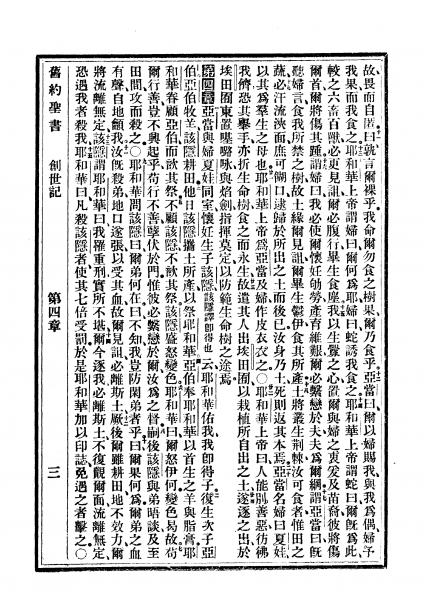 故畏而自匿曰孰言爾裸乎我命爾勿食之樹果爾乃食乎亞當曰爾以婦賜我與我爲偶婦予
我果而我食之耶和華上帝謂婦曰爾何爲耶婦曰蛇誘我食之耶和華上帝謂蛇曰爾旣爲此
較之六畜百獸必更見詛爾必腹行畢生食塵我以生釁之心置爾與婦之衷爰及苗裔彼將傷
爾首爾將傷其踵謂婦曰我必使爾懷妊劬勞產育維艱爾必繫戀於夫夫爲爾綱謂亞當曰旣
聽婦言食我所禁之樹故土緣爾見詛畢生鬱伊食其所產土將叢生荊棘汝可食者惟田之
蔬必汗流浹面庶可餬口逮歸於所出之土而後已汝身乃土死則返其本焉亞當名婦曰夏娃
以其爲羣生之母也耶和華上帝爲亞當及婦作皮衣衣之○耶和華上帝曰人能別善惡彷彿
我儕恐其舉手亦折生命樹食之而永生故遣其人出埃田囿以栽植所自出之土遂逐之出於
埃田囿東置與焰劍指揮莫定以防範生命樹之途焉
第四章 亞當與婦夏娃同室懷妊生子該隱該隱譯卽得也云耶和華佑我我卽得子復生次子亞
伯亞伯牧羊該隱耕田他日該隱攜土所產以祭耶和華亞伯奉耶和華以首生之羊與脂膏耶
和華眷顧亞伯而歆其祭不顧該隱不歆其祭該隱盛怒變色耶和華曰爾怒伊何變色曷故苟
爾行善豈不興起乎苟行不善孽伏於門惟彼必繫戀於爾汝爲之督嗣後該隱與弟晤談及至
田間攻而殺之○耶和華問該隱曰爾弟何在曰不知我豈防閑弟者乎曰爾果何爲爾弟之血
有聲自地籲我汝旣殺弟地口遂張以受其血故爾見詛必離斯土厥後爾雖耕田地不效力爾
將流離無定該隱謂耶和華曰我罹重刑實所不堪爾今逐我必離斯土不復覿爾面流離無定
恐遇我者殺我耶和華曰凡殺該隱者使其七倍受罰於是耶和華加以印誌免遇之者擊之○
舊約聖書 創世記 第四章 三